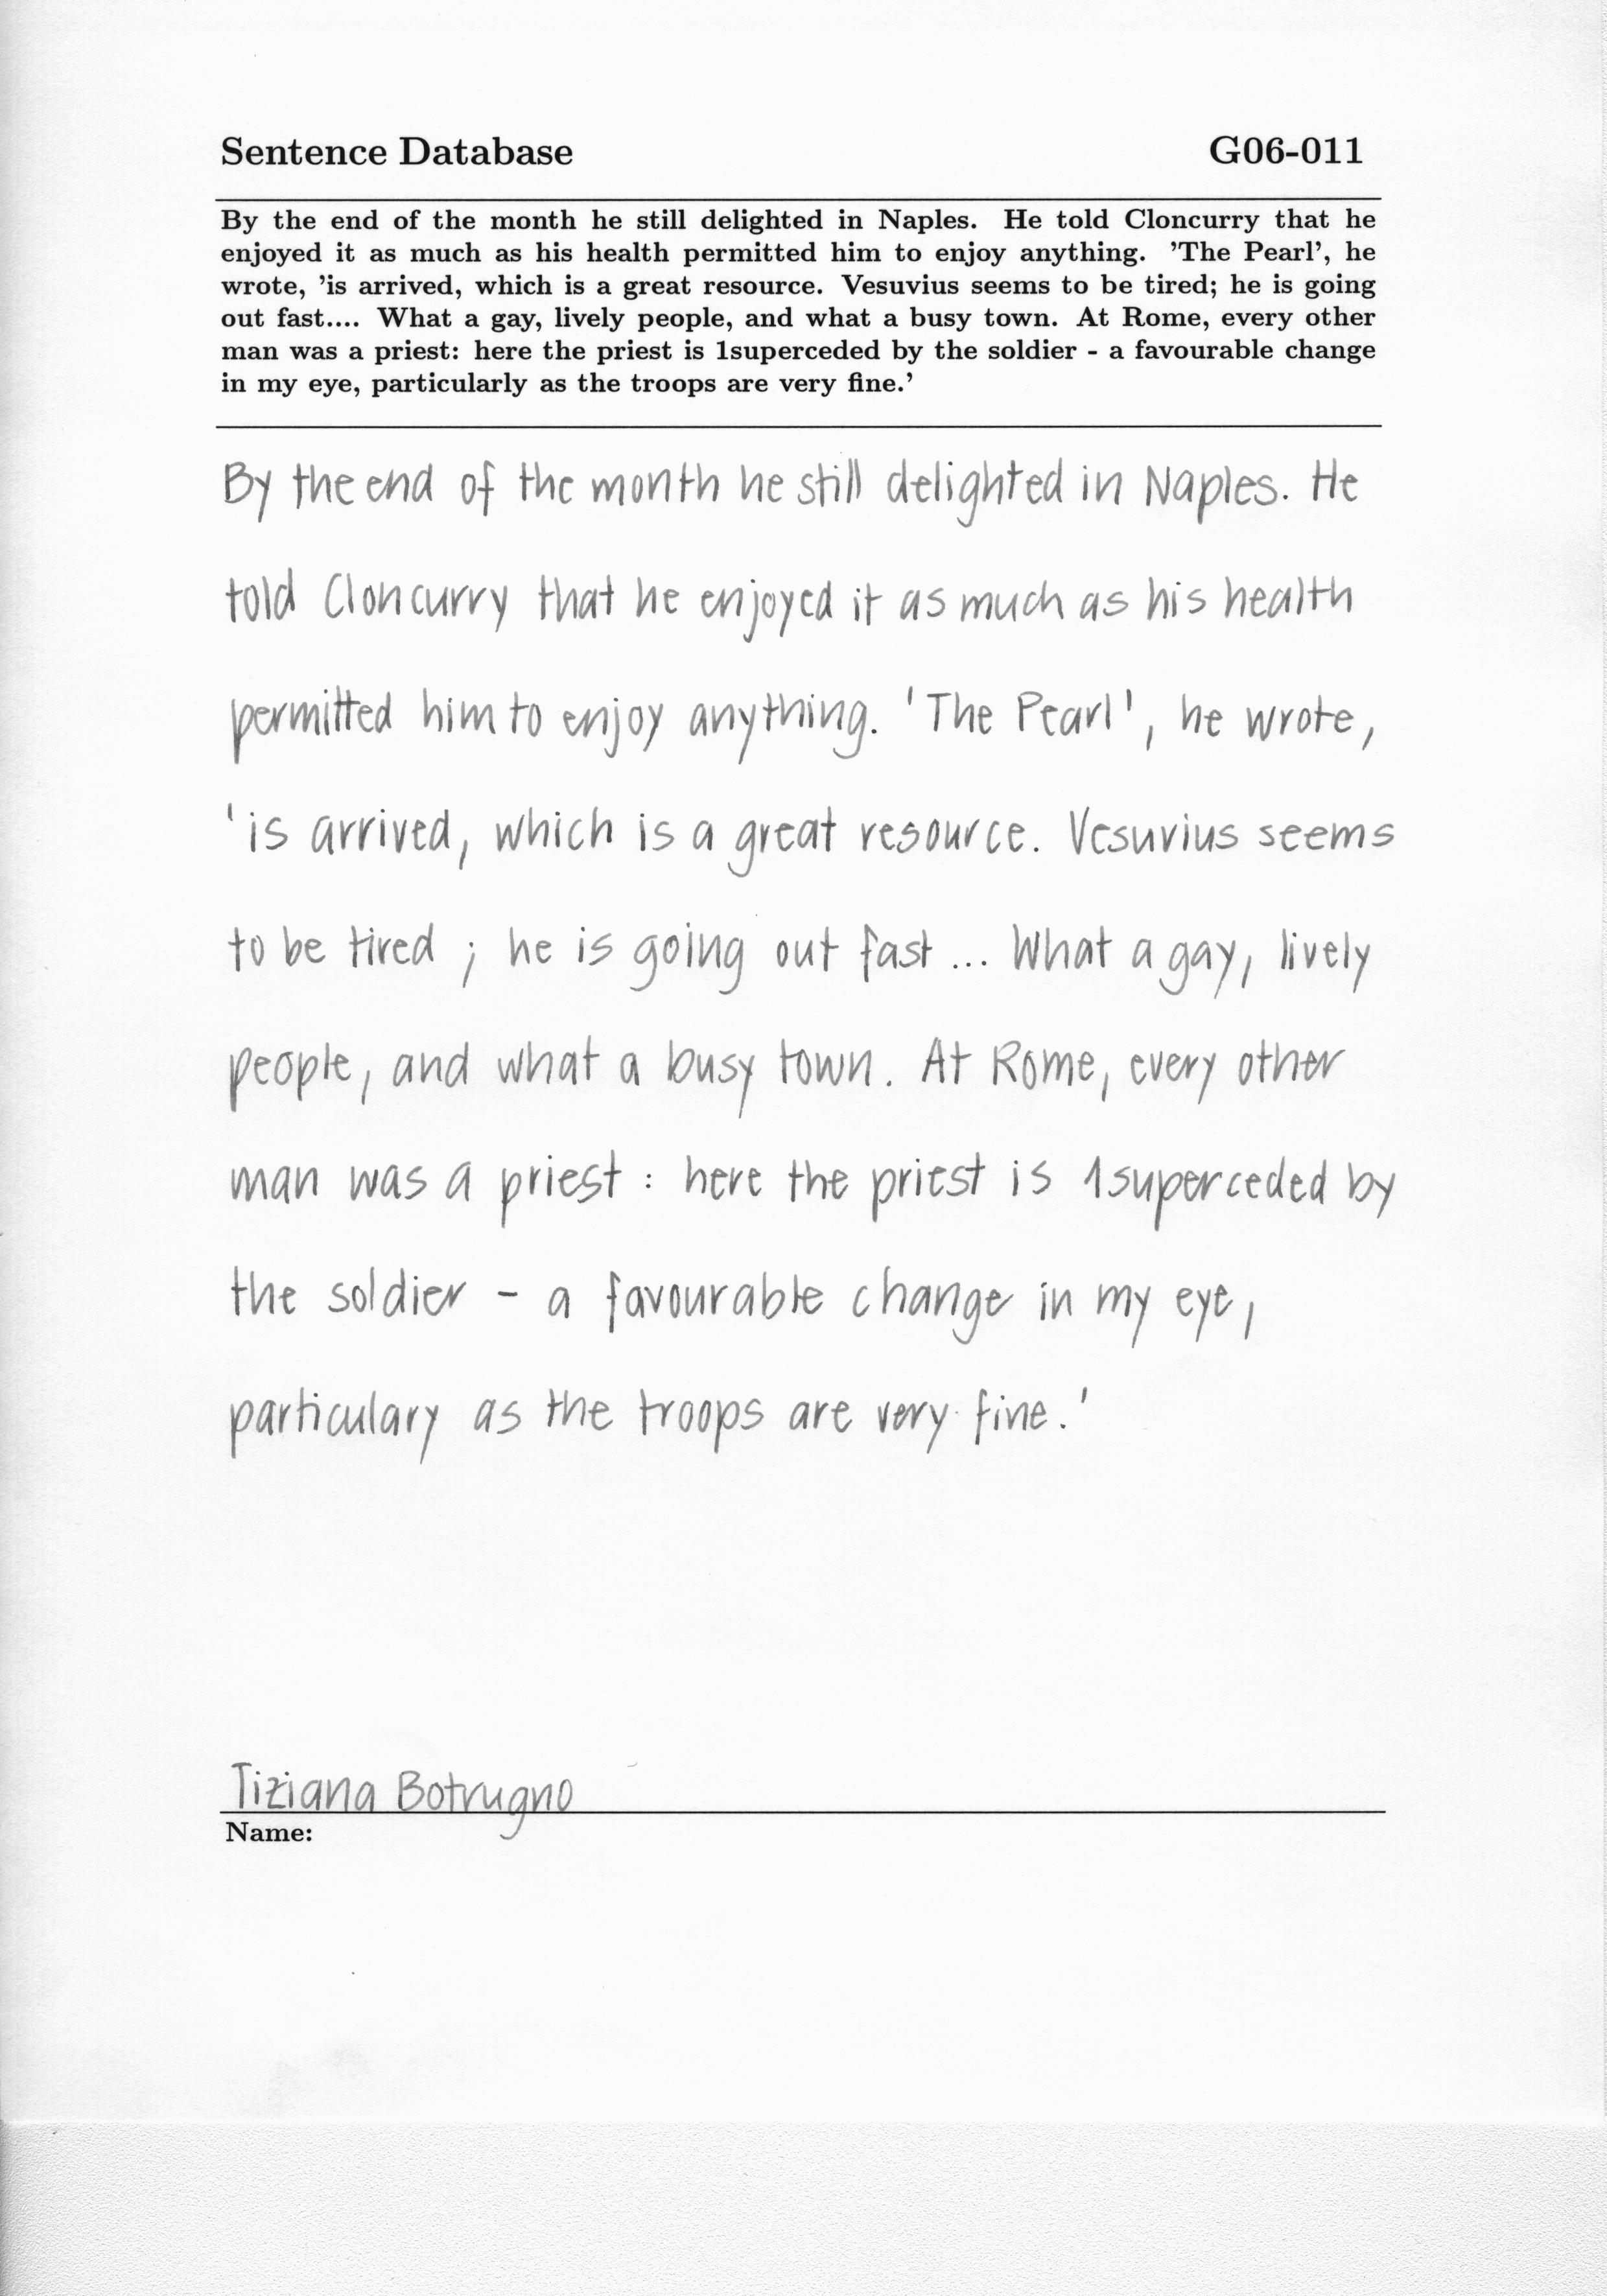 Sentence Database G06-011
By the end of the month he still delighted in Naples. He told Cloncurry that he
enjoyed it as much as his health permitted him to enjoy anything. 'The Pearl', he
wrote, 'is arrived, which is a great resource. Vesuvius seems to be tired; he is going
out fast.... What a gay, lively people, and what a busy town. At Rome, every other
man was a priest: here the priest is 1superceded by the soldier - a favourable change
in my eye, particularly as the troops are very fine.'
By the end of the month he still delighted in Naples. He
told Cloncurry that he enjoyed it as much as his health
permitted him to enjoy anything. 'The Pearl', he wrote,
'is arrived, which is a great resource. Vesuvius seems
to be tired ; he is going out fast ... What a gay, lively
people, and what a busy town. At Rome, every other
man was a priest : here the priest is 1superceded by
the soldier - a favourable change in my eye,
particulary as the troops are very fine.'
Tiziana Botrugno
Name: